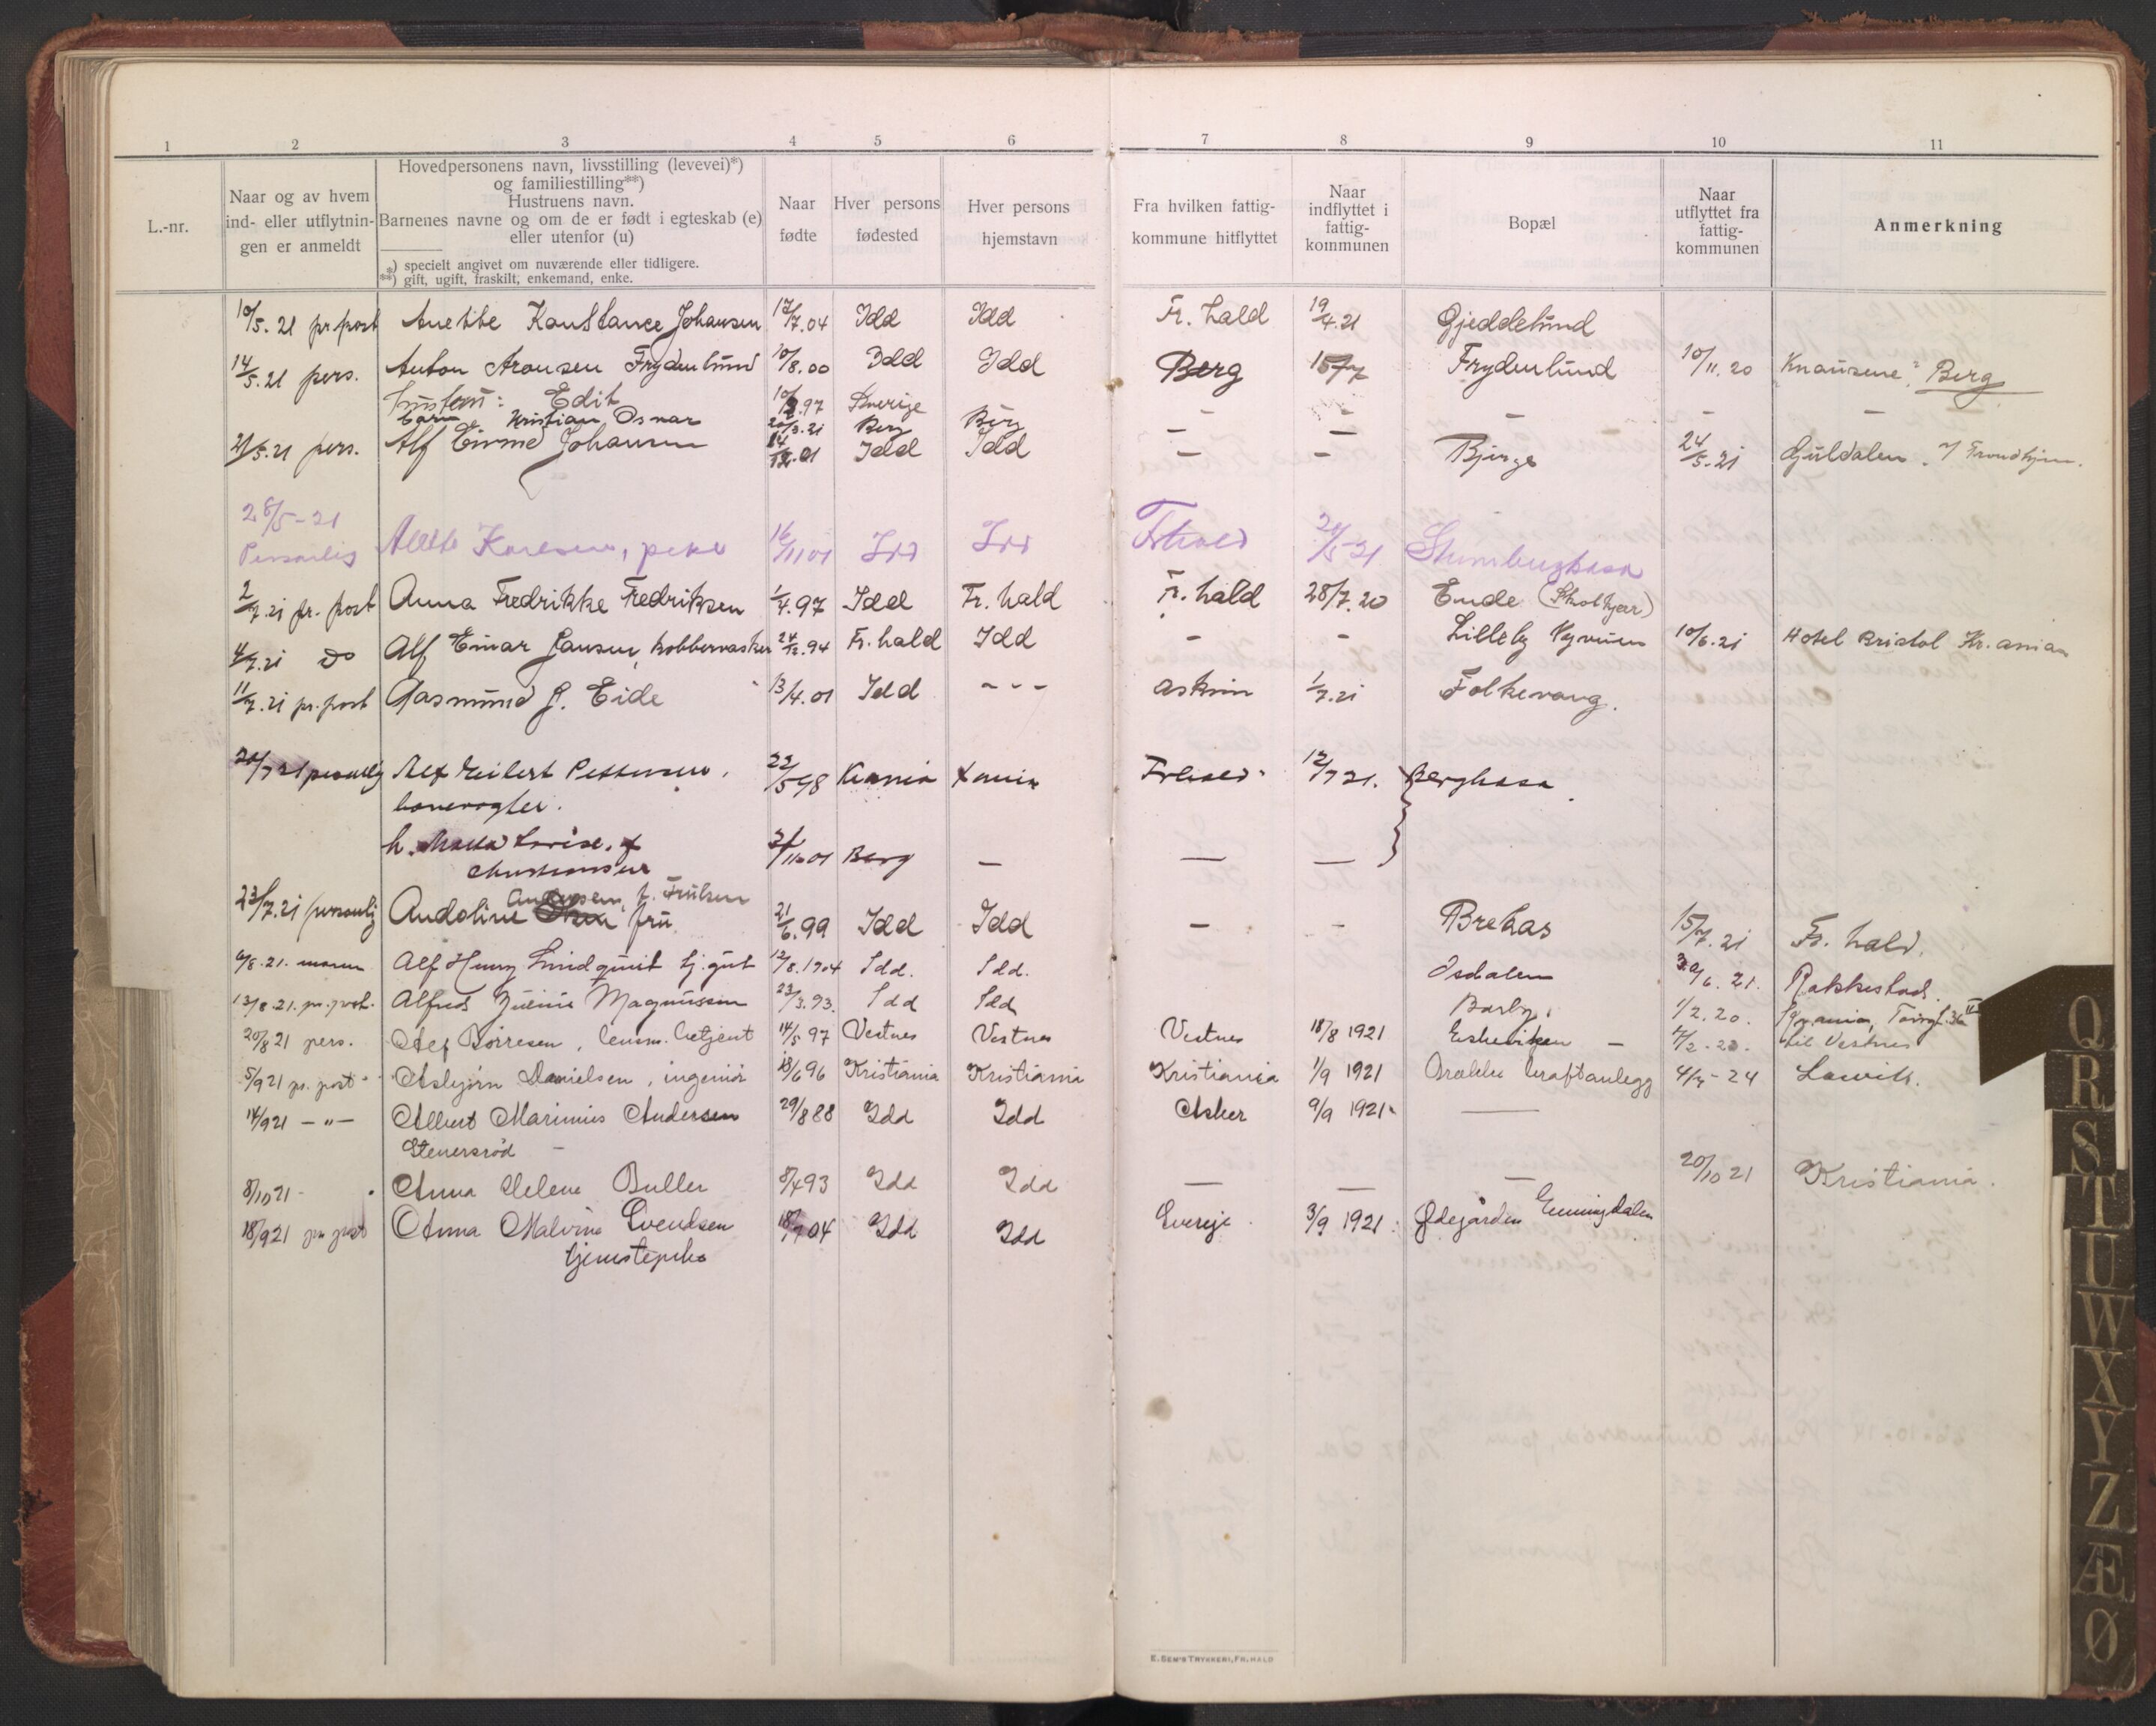 1 2 3 4 5 6 7 8 9 10 11
L.-nr.
Naar og av hvem
ind- eller utflytnin-
gen er anmeldt
Hovedpersonens navn, livsstilling (levevei)*)
og familiestilling**)
Hustruens navn.
Barnenes navne og om de er født i egteskab (e)
eller utenfor (u)
*) specielt angivet om nuværende eller tidligere.
**) gift, ugift, fraskilt, enkemand, enke.
Naar
fødte
Hver persons
fødested
Hver persons
hjemstavn
Fra hvilken fattig-
kommune hitflyttet
Naar
indflyttet i
fattig-
kommunen
Bopæl
Naar
utflyttet fra
fattig-
kommunen
Anmerkning
10/5. 21 pr post Anethe Konstance Johansen 17/7.04 Idd Idd Fr. hald 19/4.21 Gjeddelund
14/5.21 pers. Anton Aronsen Frydenlund 10/8.00 Idd Idd Berg 15/7 Frydenlund 10/11.20 Knausene, Berg
Hustru: Edit 97 Sverige
barn Kristian Osnar 3.21 Berg Berg — — — — —
21/5.21 pers. Alf Johansen 01 Idd Idd — — Bjerge 24/5.21 Guldalen. Trondhjem.
28/5-21
Personlig Karlsen, pike 16/11 01 Idd Idd Frhald 5-21
2/7.21 pr. post Anna Fredrikke Fredriksen 1/4.97 Idd Fr. hald Fr. hald 28/7.20 Ende
4/7.21 do Alf Einar Jansen, kobbervasker 94 Fr. hald Idd - - Lilleby 10/6.21 Hotel Bristol Kr.ania
11/7.21 pr. post Aasmund J. Eide 13/4.01 Idd - - - Askim 1/7.21 Folkevang.
20/7 21 personlig Alf Eilert Pettersen, 22/5 98 Kania Kania Frhald 12/7 21. Berghasa
banevogter.
h. Lovise. f 11 01 Berg — — —
23/7.21 personlig Andoline frü 21/6.99 Idd Idd — - Brekas 15/7.21 Fr. hald.
Andersen, f.
6/8.21. Alf Henry Lindquist tj. gut 12/8.1904 Idd. Idd. Osdalen 30/6.21. Rakkestad.
13/8.21. pr. post. Alfred Julius Magnussen 23/3.93. Idd Idd Barby. 1/2.20.
20/8 21 pers. Alf Börresen, lensm. betjent 14/5 97 Vestnes Vestnes Vestnes 18/8 1921 Eskeviken — til Vestnes
5/9 21 pr. post Asbjørn Danielsen, ingeniør 13/6 96 Kristiania Kristiania Kristiania 1/9 1921 Brække kraftanlegg 24
14/9 21 — " — Albert Marinius Andersen 29/8 88 Idd Idd Asker 9/9 1921 —
Stenersrød
8/10 21 Anna Helene Buller 8/4 93 Idd Idd — — — 20/10 21 Kristiania.
18/9 21 pr post Anna Malvine Svendsen 04 Idd Idd Sverige 3/9 1921 Ødegården Enningdalen
tjenestepike
E. Sem's Trykkeri, Fr.hald
Q
R
S
T
U
W
X
Y
Z
Æ
Ø